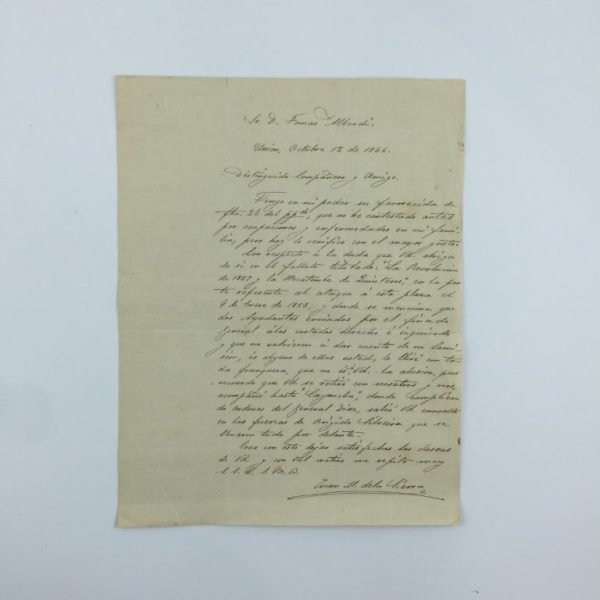 Sr. D. Tomas Alberdi.
Union, Octubre 12 de 1866.
Distinguido Compatriota y Amigo.
Tengo en mi poder su favorecida de
fha. 26 del ppdo, que no he contestado antes
por ocupaciones y enfermedades en mi fami-
lia, pero hoy lo verifico con el mayor gusto.
Con respecto á la duda que Vd. abriga
de si en el folleto titulado "La Revolucion
de 1857 y la Hecatombe de Quinteros", en la par-
te referente al ataque á esta plaza el
8 de Enero de 1858, y donde se menciona que
dos Ayudantes enviados por el finado
General á los costados derecho é izquierdo
y que no volvieron á dar cuenta de su comi-
sion, es alguno de ellos usted, le diré con to-
da franqueza, que no es á Vd. la alusion, pues
recuerdo que Vd. se retiró con nosotros y nos
acompañó hasta "Cagancha", donde cumpliendo
ordenes del General Diaz, salió Vd. envuelto
en las fuerzas de Brigido Silveira que se
llevaron todo por delante.
Creo con esto dejar satisfechos los deseos
de Vd. y con tal motivo me repito su
S. S. Q. B. S. M.
Juan M. de la Sierra